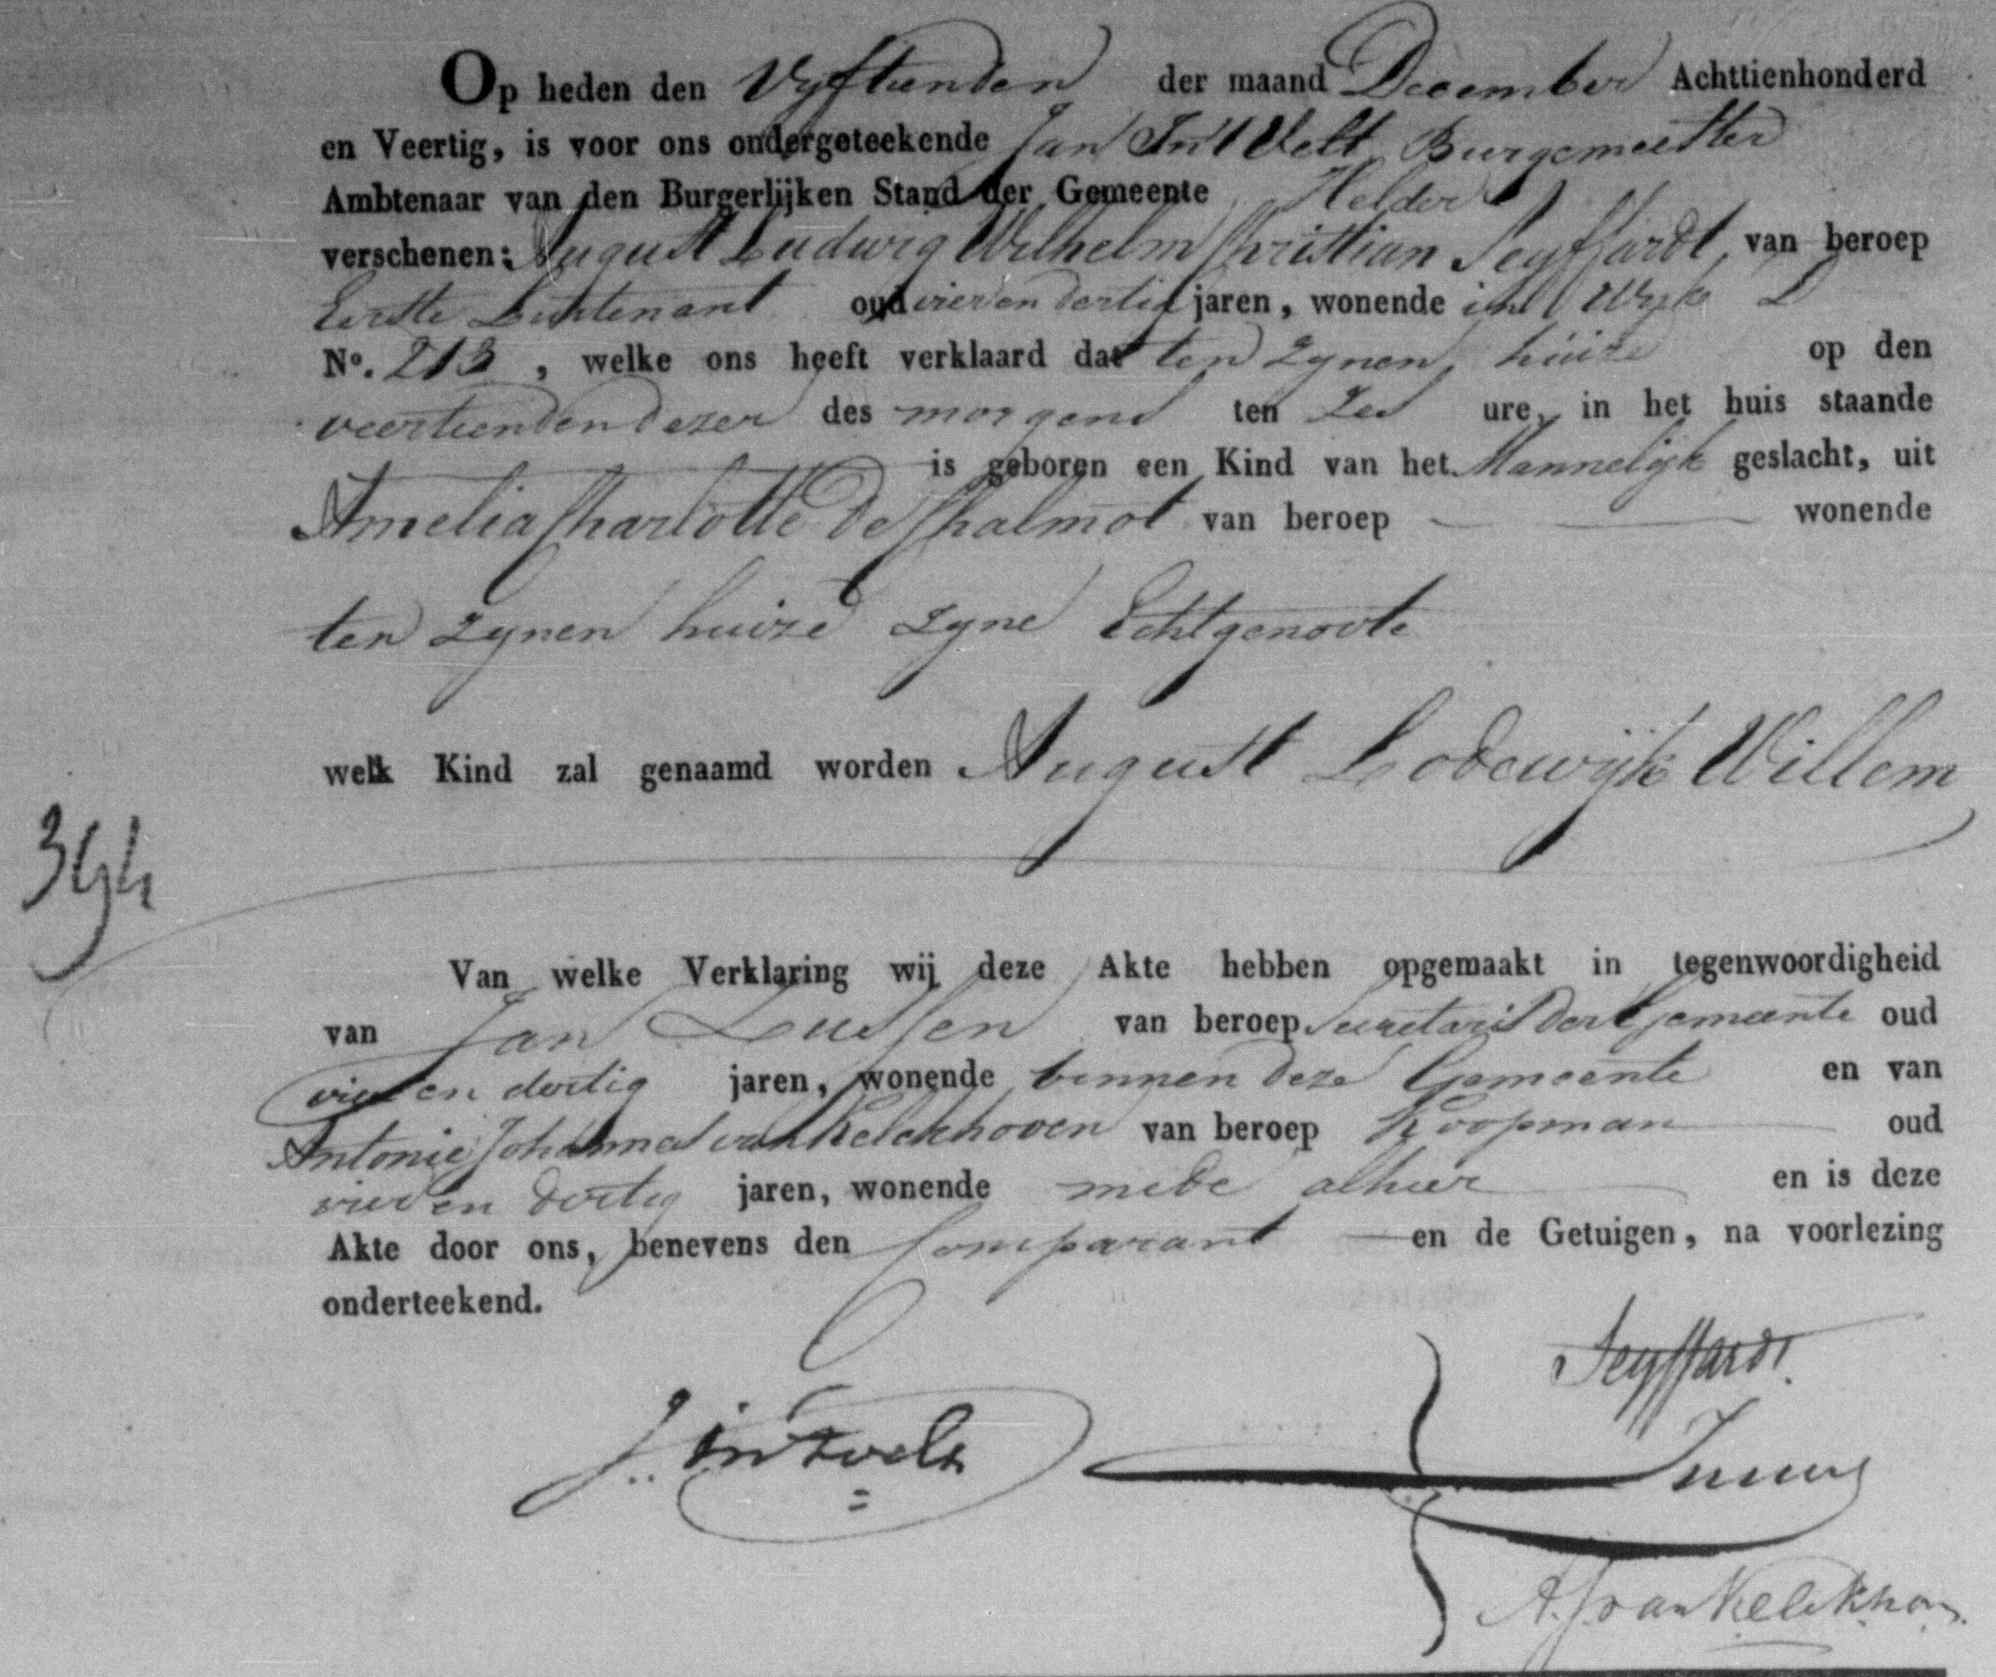 Op heden den Vyftienden der maand December Achttienhonderd
en Veertig, is voor ons ondergeteekende Jan In't Velt Burgemeester
Ambtenaar van den Burgerlijken Stand der Gemeente Helder
verschenen: August Ludwig Wilhelm Christian Seyffardt, van beroep
Eerste Luitenant oud vier en dertig jaren, wonende in Wyk D
No. 213, welke ons heeft verklaard dat ten zynen huize op den
veertienden dezer des morgens ten Zes ure, in het huis staande
is geboren een Kind van het Mannelyk geslacht, uit
Amelia Charlotte De Chalmot van beroep wonende
ten zynen huize zyne Echtgenoote
welk Kind zal genaamd worden August Lodewijk Willem
394
Van welke Verklaring wij deze Akte hebben opgemaakt in tegenwoordigheid
van Jan van beroep Secretaris der Gemeente oud
vier en dertig jaren, wonende binnen deze Gemeente en van
Antonie Johannes van Kelckhoven van beroep Koopman oud
vier en dertig jaren, wonende mede alhier en is deze
Akte door ons, benevens den Comparant en de Getuigen, na voorlezing
onderteekend.
Seyffardt.
J. in't Velt
A. J. van Kelckhoven